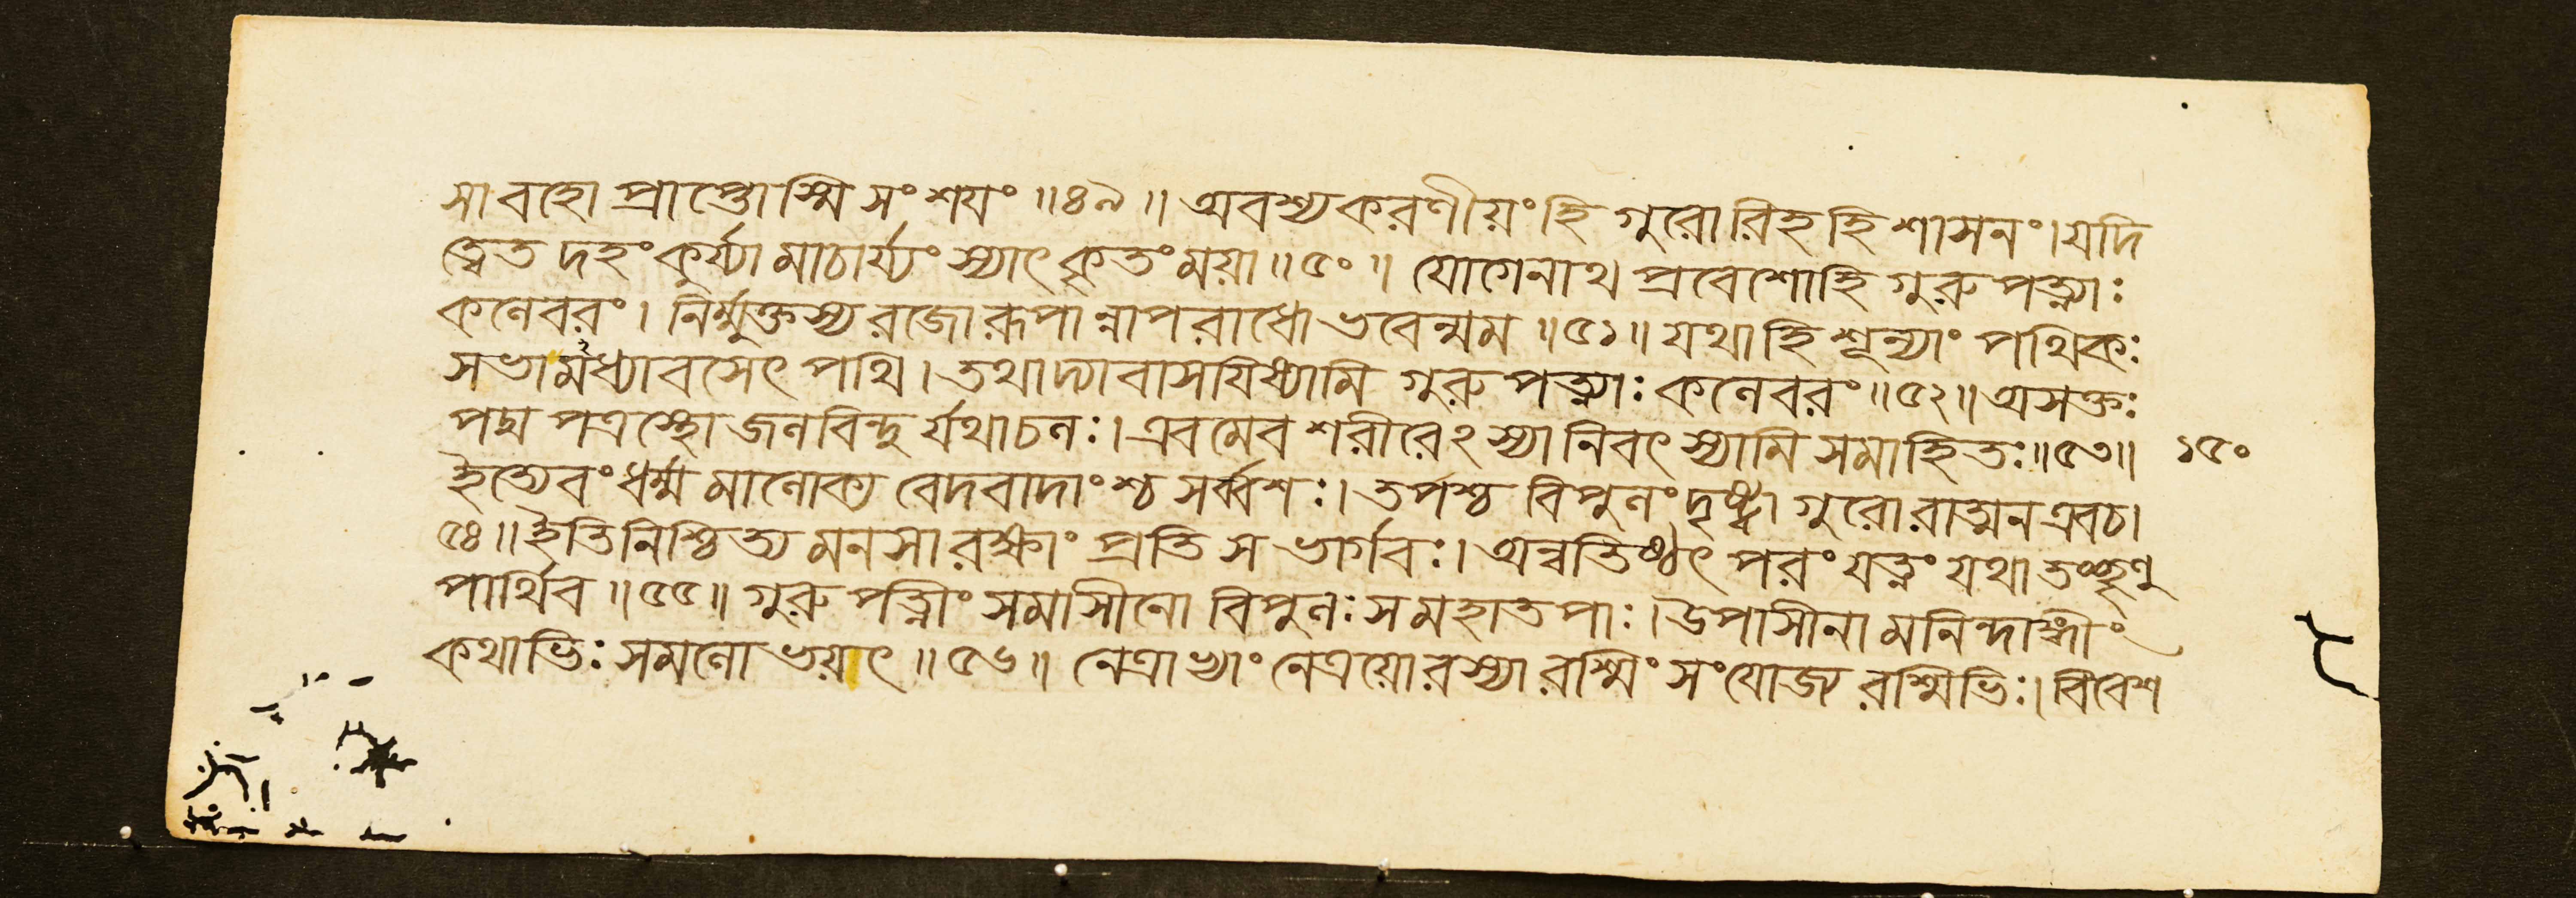 সাবহো প্রাপ্তোস্মি সংশযং ॥৪৯॥ অবশ্যকরণীয়ং হি গুরোরিহ হি শাসনং। যদি
ত্বেতদহং কুর্য্যামাচার্য্যং স্যাৎ কৃতং ময়া ॥৫০॥ যোগেনাথ প্রবেশোহি গুরুপত্ন্যাঃ
কলেবরং। নির্ম্মুক্তস্য রজোরূপান্নাপরাধো ভবেন্মম ॥৫১॥ যথাহি শূন্যাং পথিকঃ
সভামধ্যাবসেৎ পথি। তথাদ্যাবাসযিষ্যামি গুরুপত্ন্যাঃ কলেবরং ॥৫২॥ অসক্তঃ
পদ্মপত্রস্থো জলবিন্দুর্যথাচলঃ। এবমেব শরীরেঽস্যা নিবৎস্যামি সমাহিতঃ ॥৫৩॥ ১৫০
ইত্যেবং ধর্ম্মমালোক্য বেদবাদাংশ্চ সর্ব্বশঃ। তপশ্চ বিপুলং দৃষ্ট্বা গুরোরাত্মন এবচ।
৫৪॥ ইতি নিশ্চিত্য মনসা রক্ষাং প্রতি স ভার্গবঃ। অন্বতিষ্ঠৎ পরং যত্নং যথা তচ্ছৃণু
পার্থিব ॥৫৫॥ গুরুপত্নিং সমাসীনো বিপুলঃ স মহাতপাঃ। উপাসীনামনিন্দাঙ্গীং
কথাভিঃ সমলোভয়াৎ ॥৫৬॥ নেত্রাভ্যাং নেত্রয়োরস্যা রশ্মিং সংযোজ্য রশ্মিভিঃ। বিবেশ